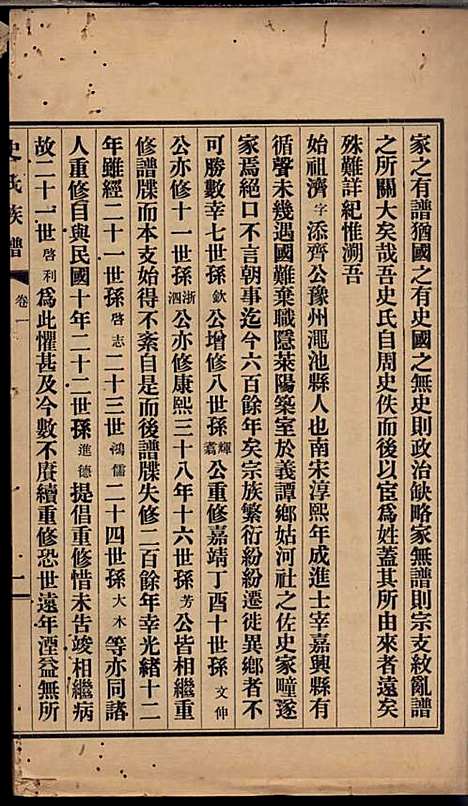 家之有譜猶國之有史國之無史則政治缺略家無譜則宗支紋亂譜
之所關大矣哉吾史氏自周史佚而後以宦爲姓蓋其所由來者遠矣
殊難詳紀惟溯吾
始祖濟字添齊公豫州澠池縣人也南宋淳熙年成進士宰嘉興縣有
循聲未幾遇國難棄職隱萊陽築室於義譚鄉姑河社之佐史家疃遂
家焉絕口不言朝事迄今六百餘年矣宗族繁衍紛紛遷徙異鄉者不
可勝數幸七世孫欽公增修八世孫輝翥公重修嘉靖丁酉十世孫文伸
公亦修十一世孫浙泗公亦修康熙三十八年十六世孫芳公皆相繼重
修譜牒而本支始得不紊自是而後譜牒失修二百餘年幸光緒十二
年雖經二十一世孫啓志二十三世鴻儒二十四世孫大木等亦同諸
人重修自與民國十年二十二世孫進德提倡重修惜未告竣相繼病
故二十一世啓利爲此懼甚及今數不賡續重修恐世遠年湮益無所
史氏族譜
卷一
一